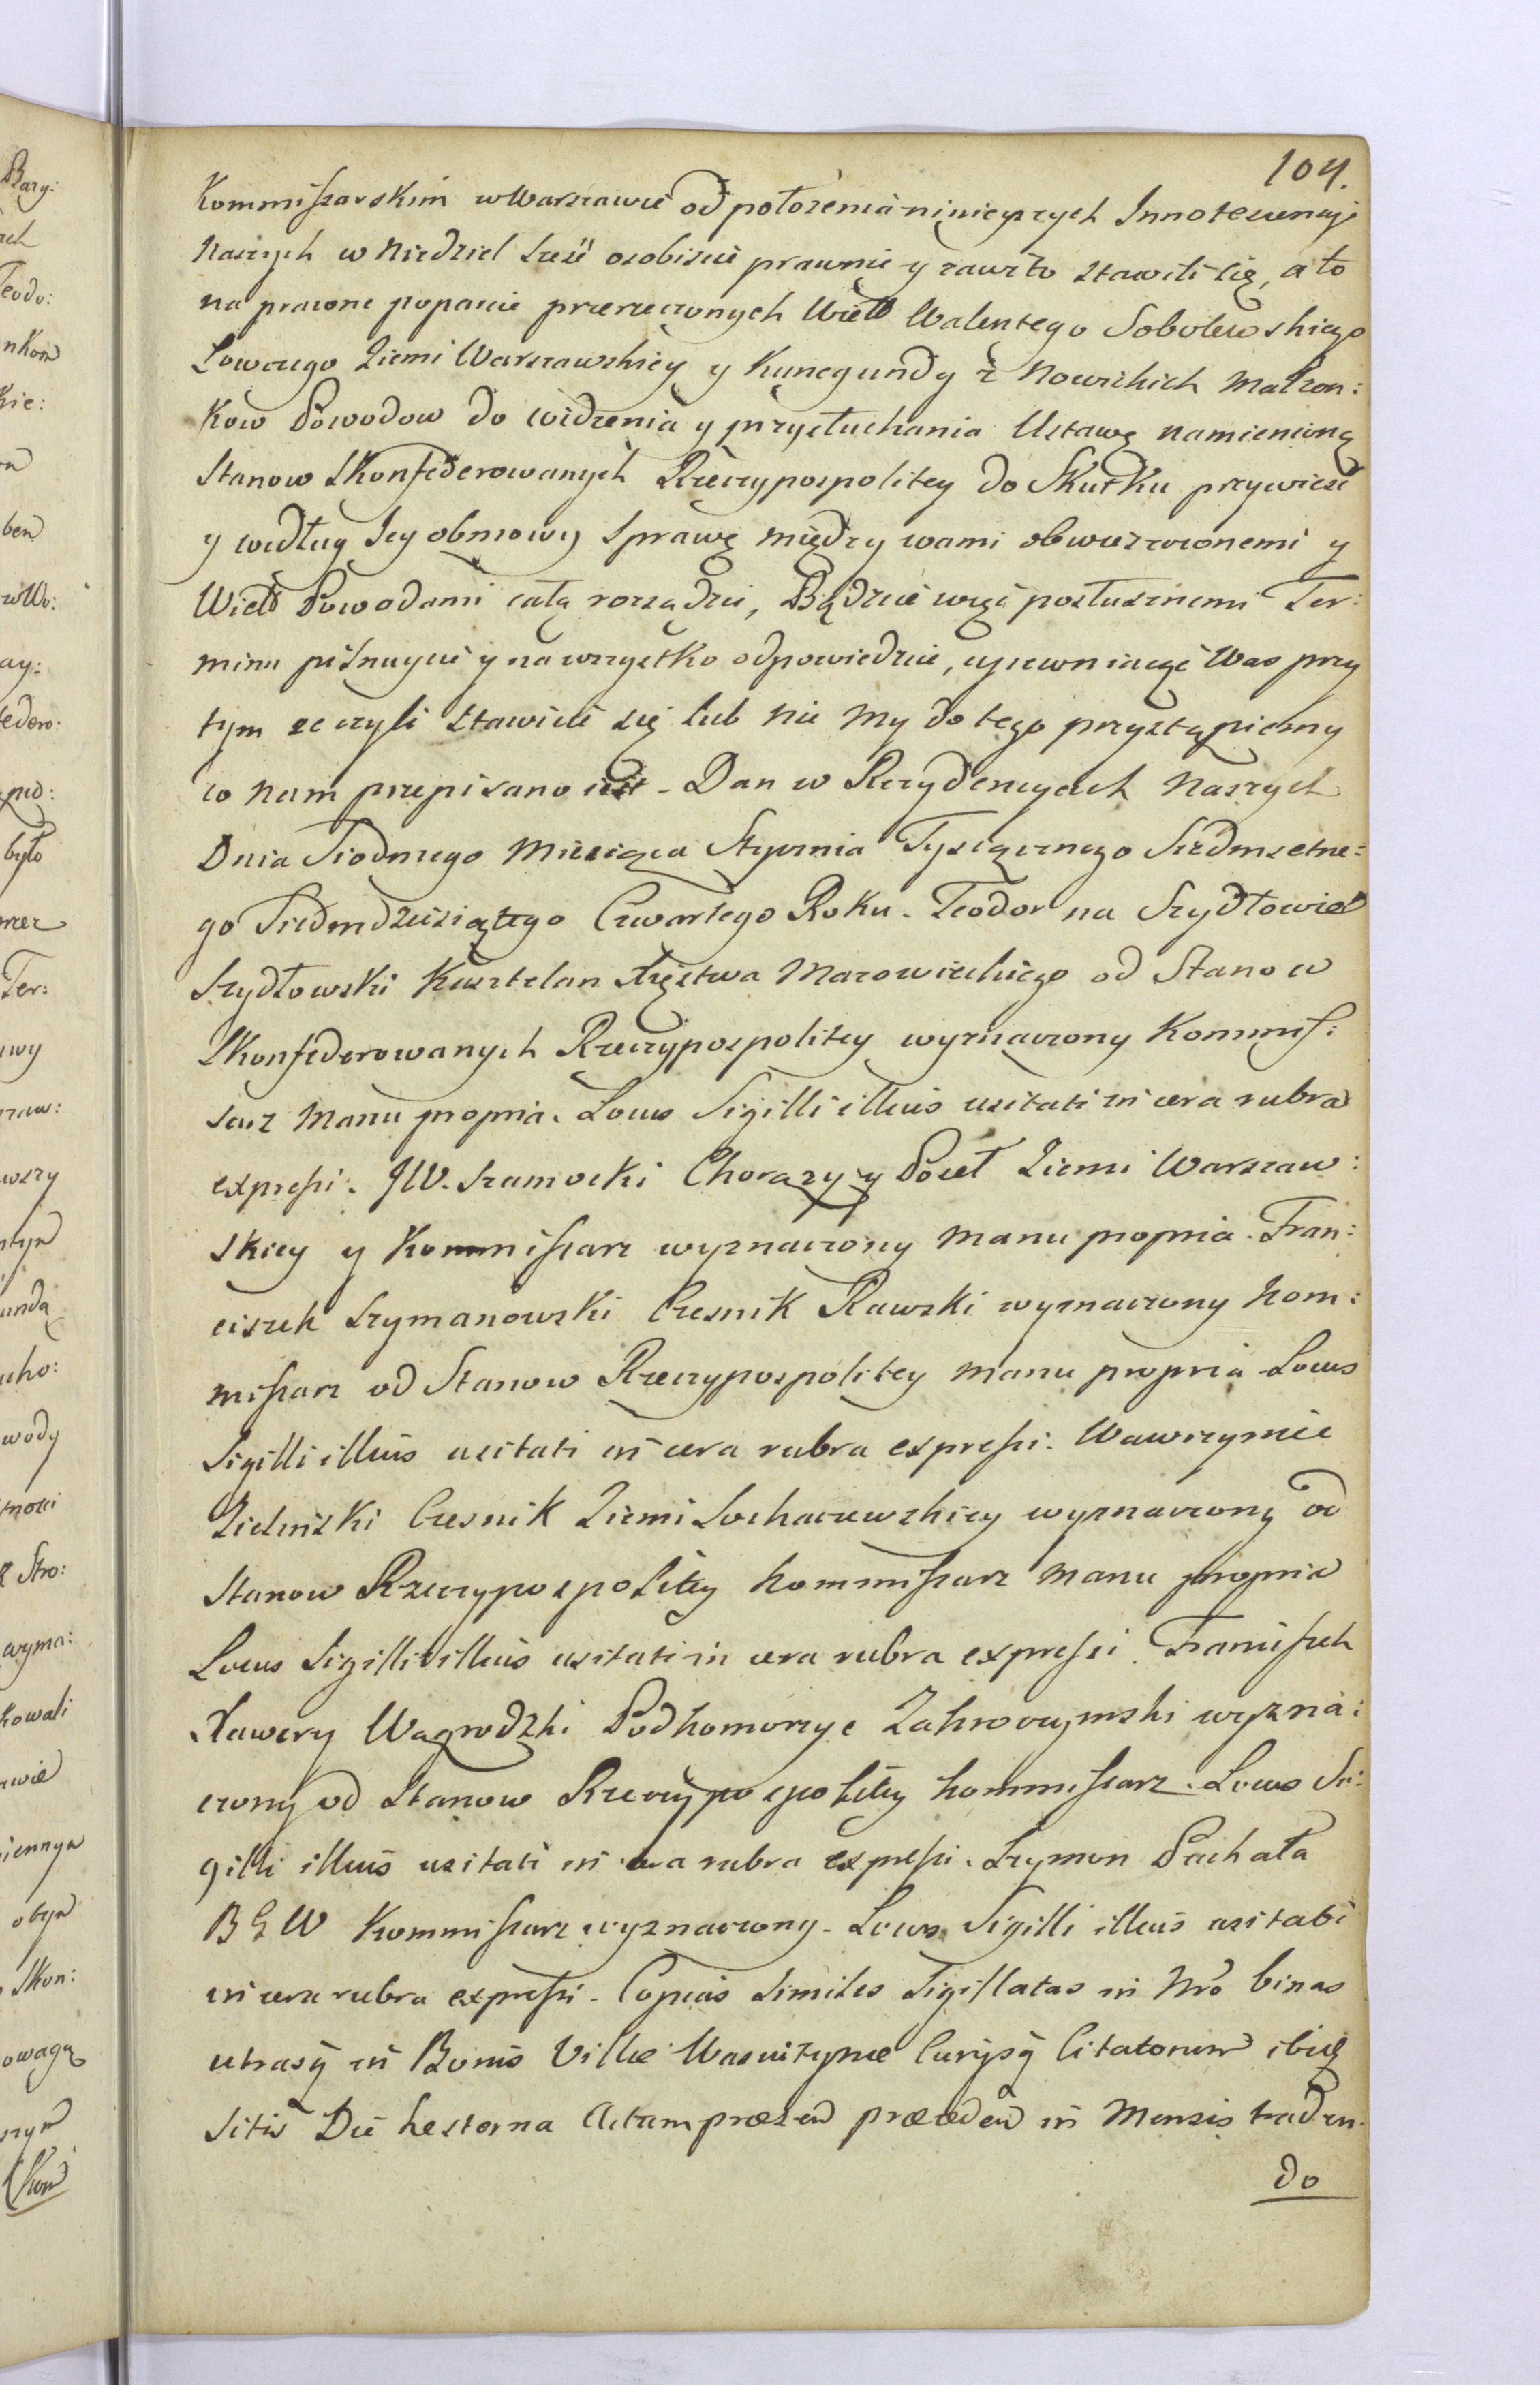 104.
Kommissarskim w Warszawie od położenia ninieyszych Innotescencyi
Naszych w Niedziel sześć osobiście prawnie y zawito stawili się, a to
na prawne poparcie przerzeczonych Wielb Walentego Sobolewskiego
Łowczego Ziemi Warszawskiey y Kunegundy z Nowickich Małżon:
kow Powodow do widzenia y przysłuchania Ustawę namienioną
Stanow Skonfederowanych Rzeczypospolitey do Skutku przywieść
y według Jey obmowy Sprawę między wami obwieszczonemi y
Wielb Powodami całą rozsądzić, Bądźcie więc posłusznemi Ter:
minu pilnuycie y na wszystko odpowiedzcie, upewniaiąc Was przy
tym że czyli stawicie się lub nie my do tego przystąpiemy
co nam przepisano iest - Dan w Rezydencyach Naszych
Dnia Siodmego Miesiąca Stycznia Tysiącznego Siedmsetne:
go Siedmdziesiątego Czwartego Roku. Teodor na Szydłowie
Szydłowski Kasztelan Xięstwa Mazowieckiego od Stanow
Skonfederowanych Rzeczypospolitey wyznaczony Kommis:
sarz Manu propria. Locus Sigilli illius usitati in cera rubra
expressi. JW. Szamocki Chorąży y Poseł Ziemi Warszaw:
skiey y Kommissarz wyznaczony Manu propria. Fran:
ciszek Szymanowski Czesnik Rawski wyznaczony Kom:
missarz od Stanow Rzeczypospolitey manu propria Locus
Sigilli illius usitati in cera rubra expressi. Wawrzyniec
Zielinski Czesnik Ziemi Sochaczewskiey wyznaczony od
Stanow Rzeczypospolitey Kommissarz Manu propria
Locus Sigilli illius usitati in cera rubra expressi. Franciszek
Xawery Wągrodzki Podkomorzyc Zakroczymski wyzna:
czony od Stanow Rzeczypospolitey Kommissarz. Locus Si:
gilli illius usitati in cera rubra expressi. Szymon Pachała
B G W Kommissarz wyznaczony. Locus Sigilli illius usitati
in cera rubra expressi. Copias Similes Sigillatas in Nro binas
utrasq in Bonis Villæ Citatorum ibiq
sitis Die hesterna Actum præsen præceden in Mensis traden
do